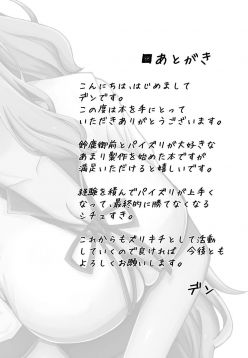 あとがき
こんにちは、はじめまして
デンです。
この度は本を手にとって
いただきありがとうございます。
鈴鹿御前とパイズリが大好きな
あまり製作を始めた本ですが
満足いただけると嬉しいです。
経験を積んでパイズリが上手く
なって、最終的に勝てなくなる
シチュすき。
これからもズリキチとして活動
していくので良ければ、今後とも
よろしくお願いします。
デン